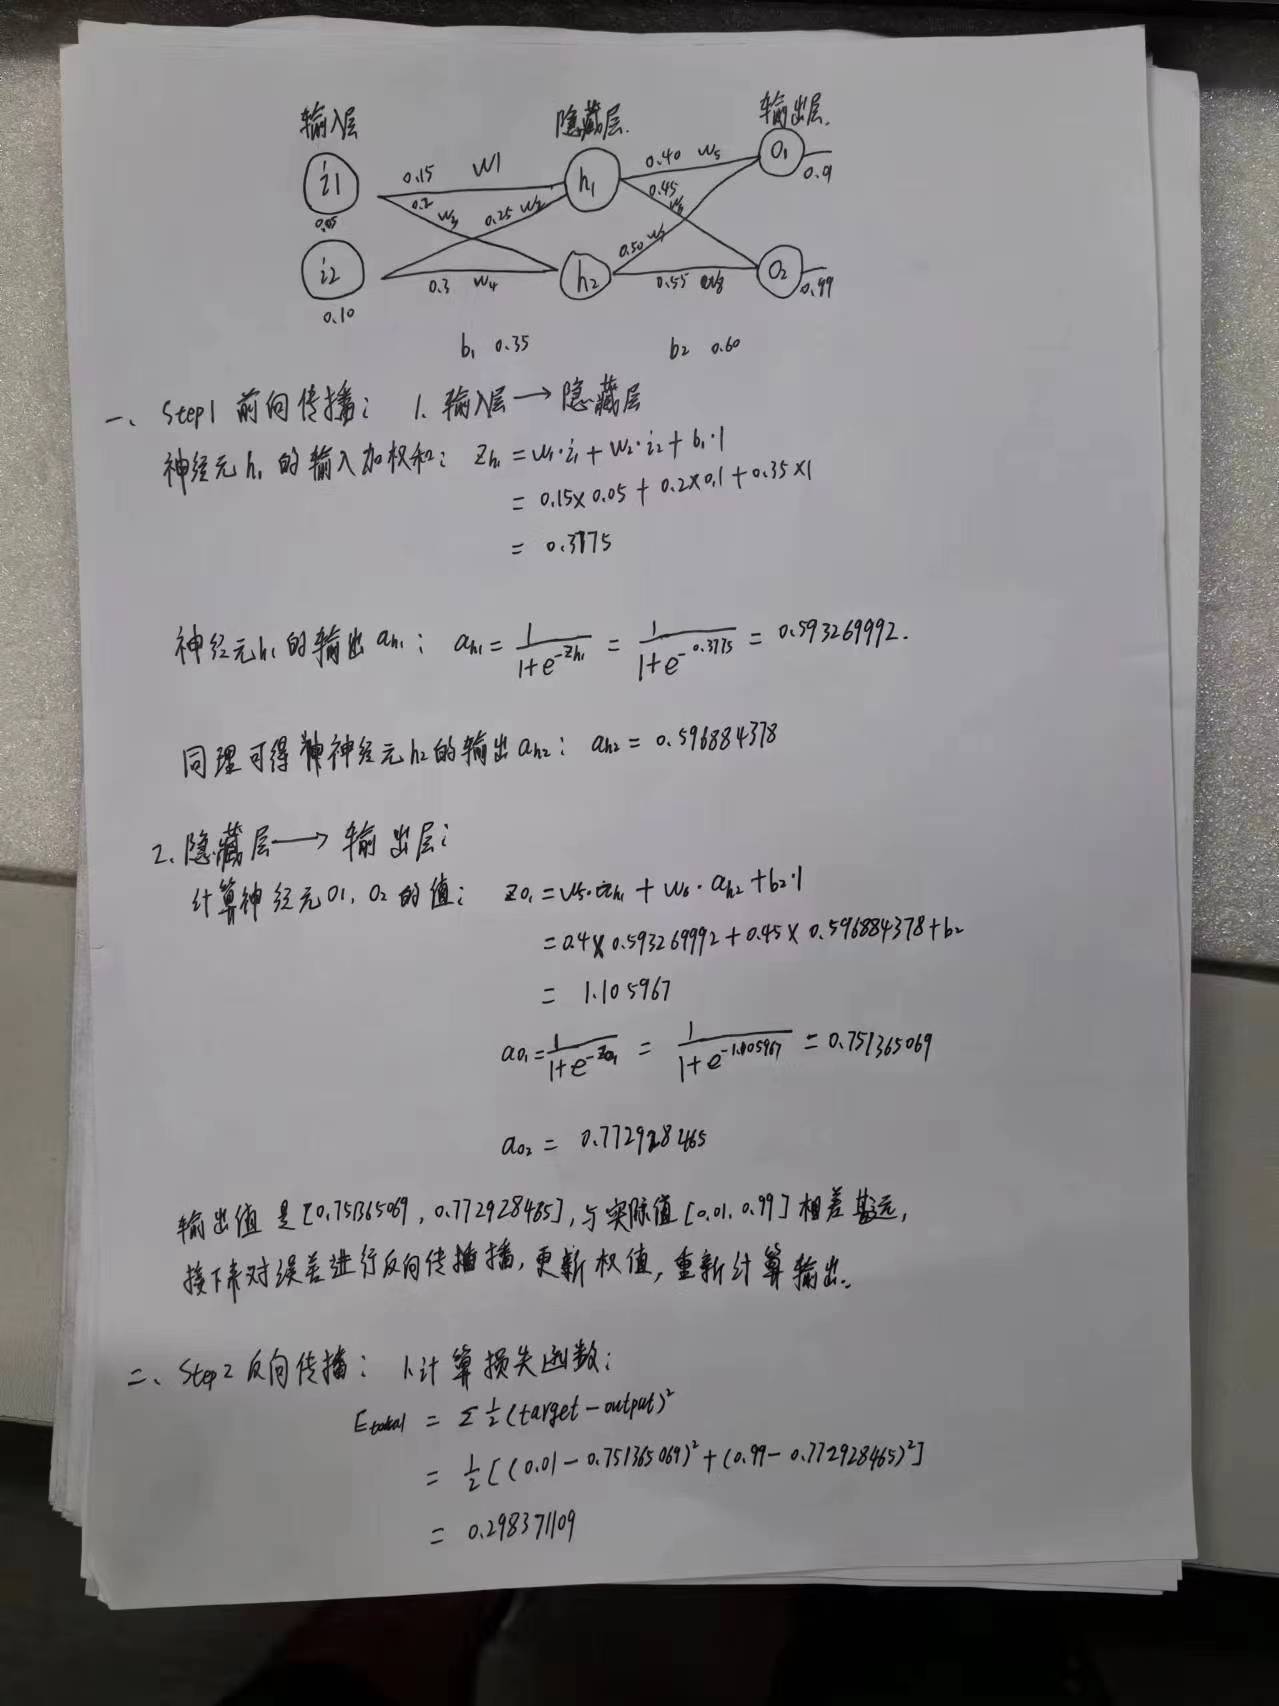 输入层 隐藏层. 输出层.
i1 0.15 W1 h₁ 0.40 w₅ O₁ 0.9
0.05 0.2 w₃ 0.25 w₂ 0.45
i2 0.3 w₄ h₂ 0.50 0.55 O₂ 0.99
0.10
b₁ 0.35 b₂ 0.60
一、Step1 前向传播: 1. 输入层→隐藏层
神经元h₁的输入加权和: Zh₁ = w₁·i₁ + w₂·i₂ + b₁·1
= 0.15×0.05 + 0.2×0.1 + 0.35×1
= 0.3775
神经元h₁的输出ah₁: ah₁ = 1/(1+e^-Zh₁) = 1/(1+e^-0.3775) = 0.593269992.
同理可得神经元h₂的输出ah₂: ah₂ = 0.596884378
2.隐藏层→输出层:
计算神经元O1, O2的值: ZO₁ = w₅·ah₁ + w₆·ah₂ + b₂·1
= 0.4×0.593269992 + 0.45×0.596884378 + b₂
= 1.105967
aO₁ = 1/(1+e^-ZO₁) = 1/(1+e^-1.105967) = 0.751365069
aO₂ = 0.772928465
输出值是[0.751365069, 0.772928465], 与实际值[0.01, 0.99]相差甚远,
接下来对误差进行反向传播, 更新权值, 重新计算输出.
二、Step2 反向传播: 1.计算损失函数:
Etotal = Σ½(target-output)²
= ½[(0.01-0.751365069)² + (0.99-0.772928465)²]
= 0.298371109